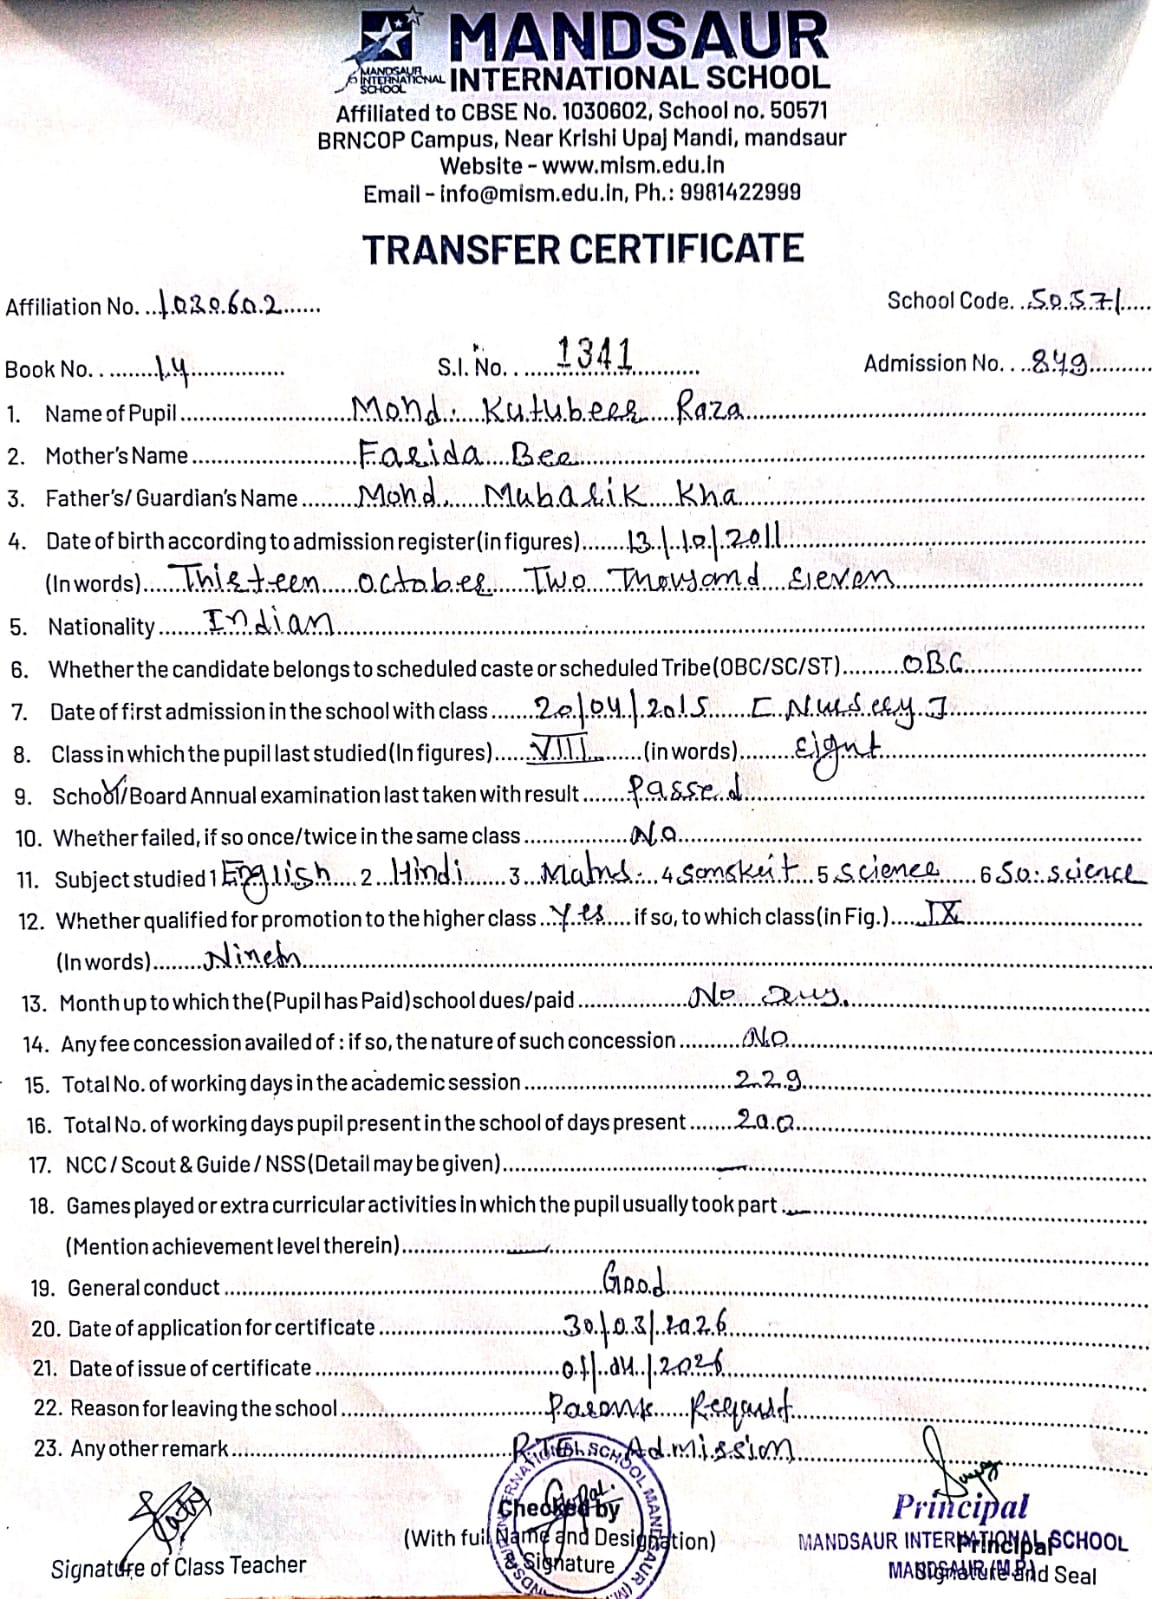 MANDSAUR
INTERNATIONAL SCHOOL
MANDSAUR
INTERNATIONAL
SCHOOL
Affiliated to CBSE No. 1030602, School no. 50571
BRNCOP Campus, Near Krishi Upaj Mandi, mandsaur
Website - www.mism.edu.in
Email - info@mism.edu.in, Ph.: 9981422999
TRANSFER CERTIFICATE
Affiliation No. 1030602 School Code. 50571
Book No. 14 S.I. No. 1341 Admission No. 849
1. Name of Pupil Mohd. Kutubeer Raza
2. Mother's Name Farida Bee
3. Father's/ Guardian's Name Mohd. Mubarik Kha
4. Date of birth according to admission register (in figures) 13/10/2011
(In words) Thirteen october Two Thousand Eleven
5. Nationality Indian
6. Whether the candidate belongs to scheduled caste or scheduled Tribe (OBC/SC/ST) OBC
7. Date of first admission in the school with class 20/04/2015 [Nursery]
8. Class in which the pupil last studied (In figures) VIII (in words) Eight
9. School/Board Annual examination last taken with result Passed
10. Whether failed, if so once/twice in the same class No
11. Subject studied 1 English 2 Hindi 3 Maths. 4 Samskrit 5 Science 6 So. science
12. Whether qualified for promotion to the higher class Yes if so, to which class (in Fig.) IX
(In words) Nineth
13. Month up to which the (Pupil has Paid) school dues/paid No Dues.
14. Any fee concession availed of : if so, the nature of such concession No
15. Total No. of working days in the academic session 229
16. Total No. of working days pupil present in the school of days present 200
17. NCC / Scout & Guide / NSS (Detail may be given) —
18. Games played or extra curricular activities in which the pupil usually took part —
(Mention achievement level therein) —
19. General conduct Good
20. Date of application for certificate 30/03/2026
21. Date of issue of certificate 01/04/2026
22. Reason for leaving the school Parents Request
23. Any other remark RTE Admission
Checked by
(With full Name and Designation)
Signature
Signature of Class Teacher
Principal
MANDSAUR INTERNATIONAL SCHOOL
MANDSAUR (M.P.)
Principal
Signature and Seal